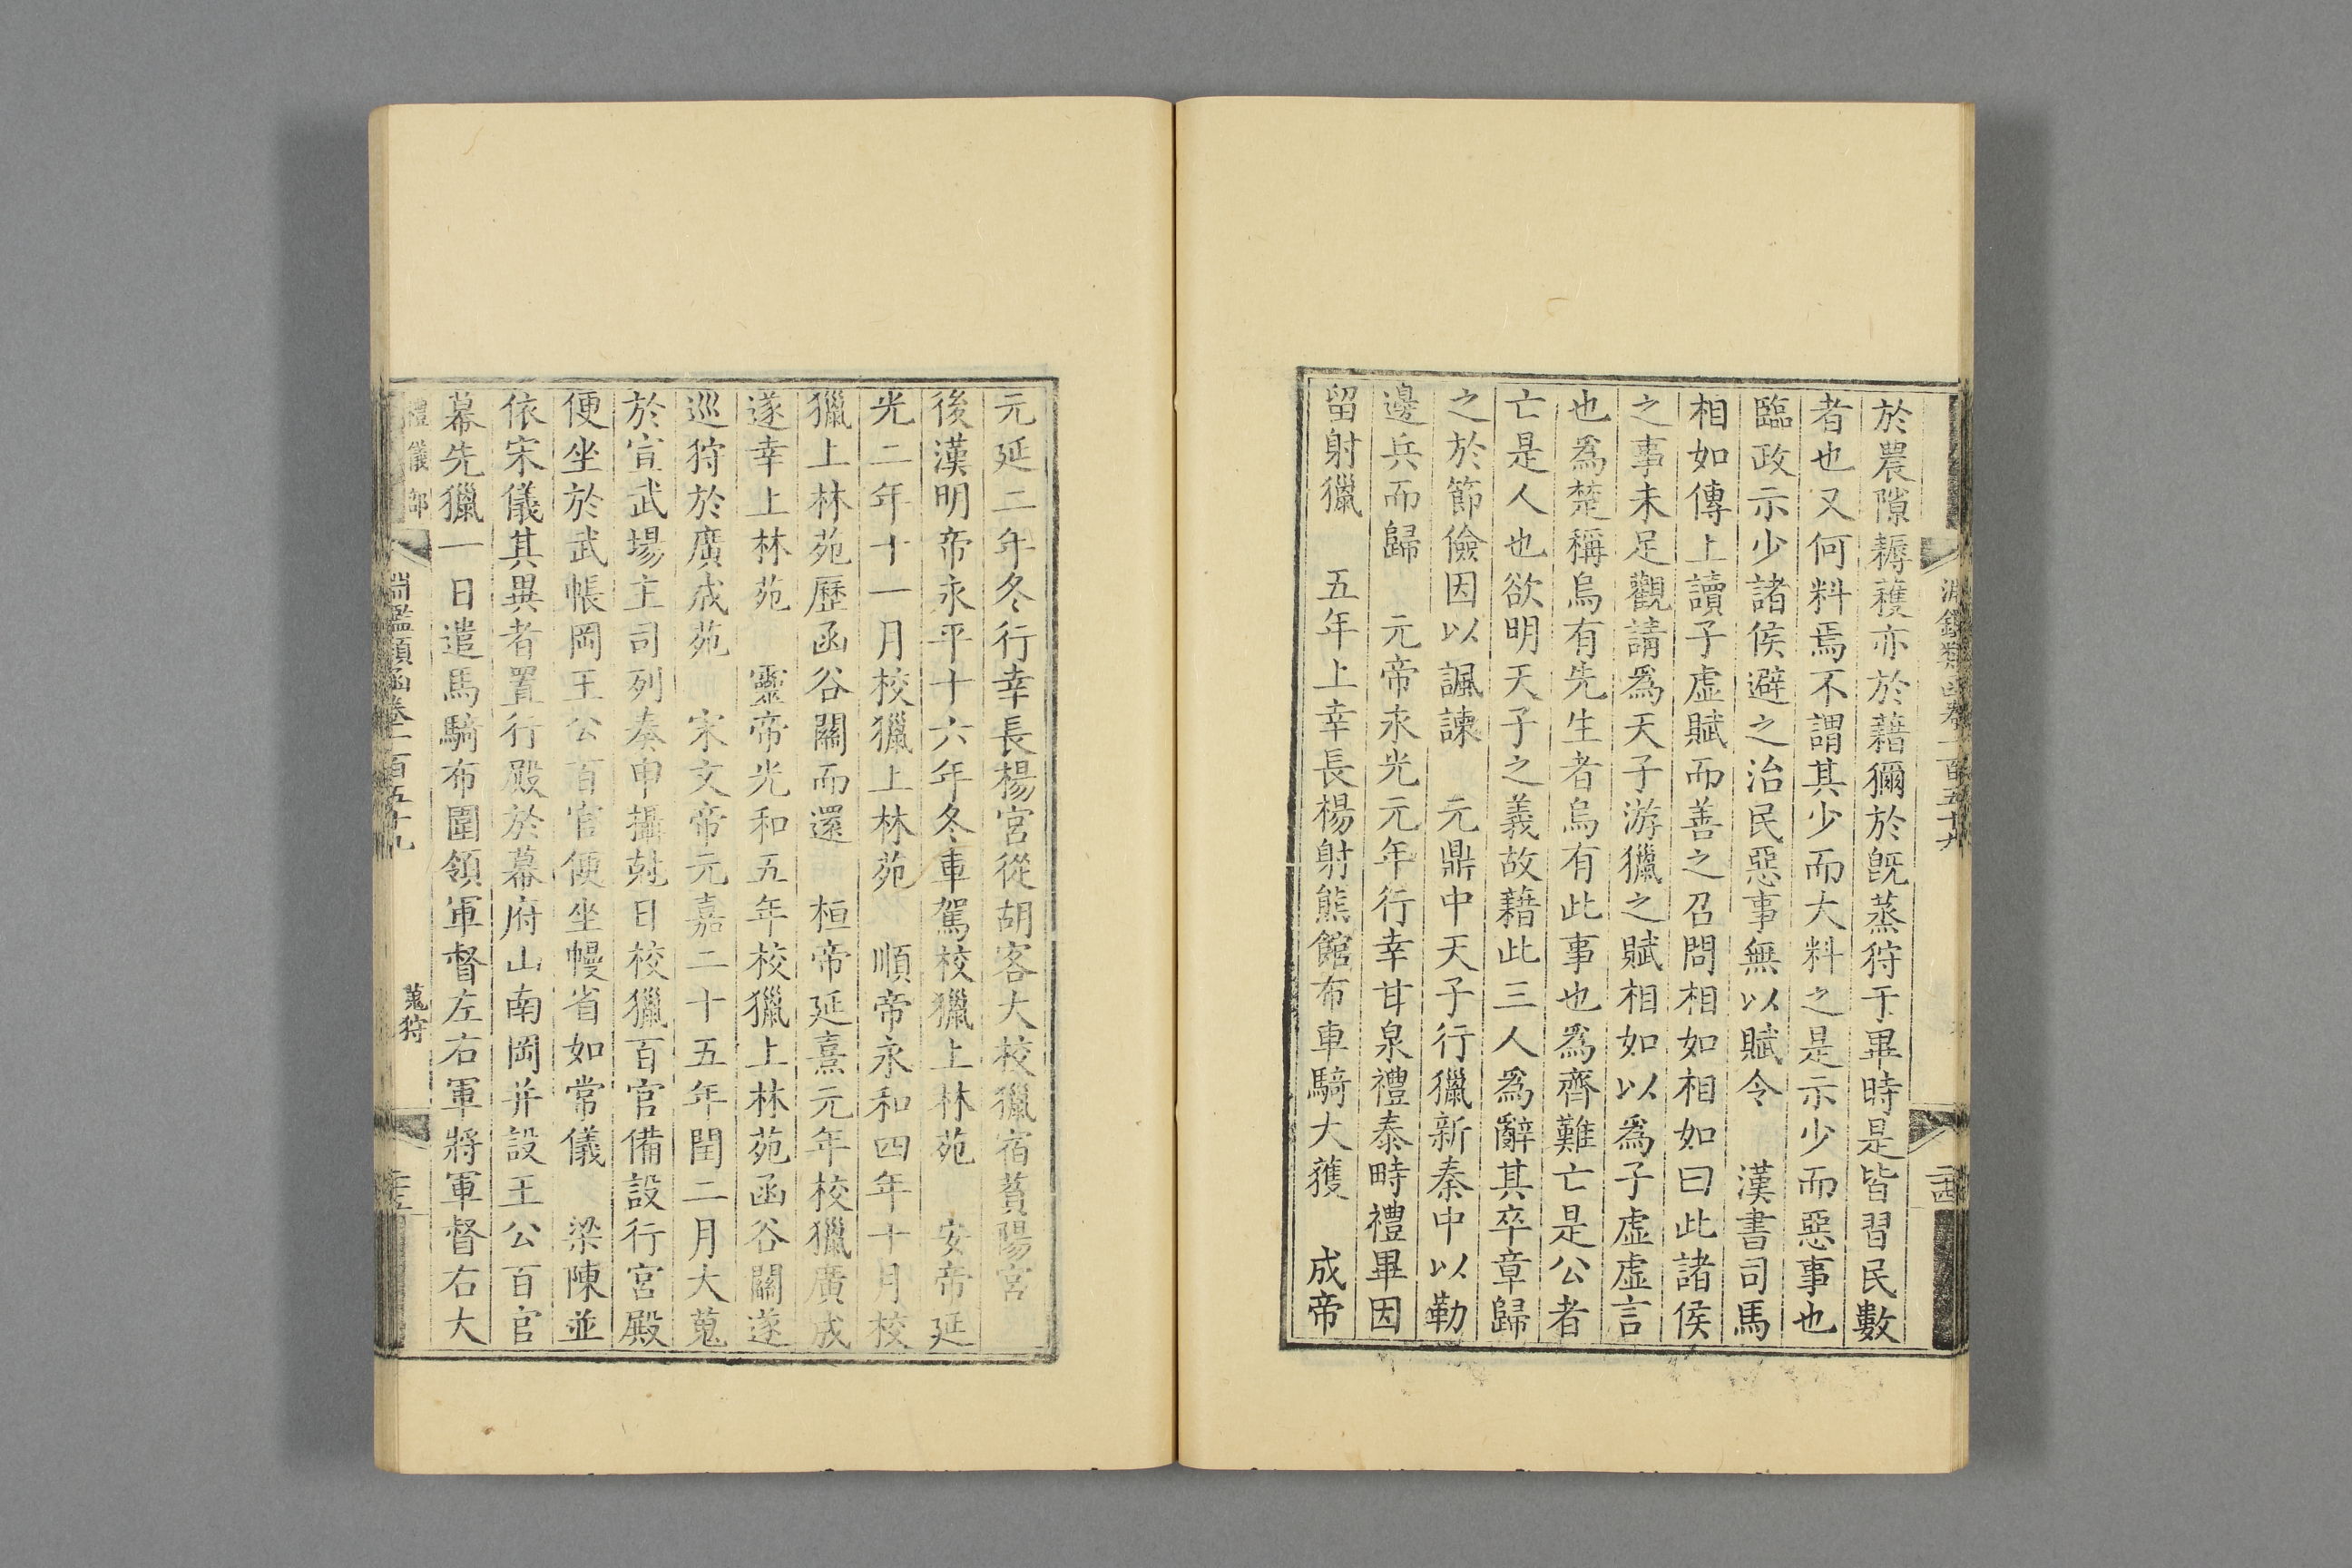 於農隙耨穫亦於藉獮於旣蒸狩于畢時是皆習民數
者也又何料焉不謂其少而大料之是示少而惡事也
臨政示少諸侯避之治民惡事無以賦令　漢書司馬
相如傳上讀子虛賦而善之召問相如相如曰此諸侯
之事未足觀請爲天子游獵之賦相如以爲子虛虛言
也爲楚稱烏有先生者烏有此事也爲齊難亡是公者
亡是人也欲明天子之義故藉此三人爲辭其卒章歸
之於節儉因以諷諫　元鼎中天子行獵新秦中以勒
邊兵而歸　元帝永光元年行幸甘泉禮泰畤禮畢因
留射獵　五年上幸長楊射熊館布車騎大獲　成帝
元延二年冬行幸長楊宮從胡客大校獵宿萯陽宮
後漢明帝永平十六年冬車駕校獵上林苑　安帝延
光二年十一月校獵上林苑　順帝永和四年十月校
獵上林苑歷函谷關而還　桓帝延熹元年校獵廣成
遂幸上林苑　靈帝光和五年校獵上林苑函谷關遂
巡狩於廣成苑　宋文帝元嘉二十五年閏二月大蒐
於宣武場主司列奏申攝尅日校獵百官備設行宮殿
便坐於武帳岡王公百官便坐幔省如常儀　梁陳並
依宋儀其異者置行殿於幕府山南岡并設王公百官
幕先獵一日遣馬騎布圍領軍督左右軍將軍督右大
禮儀部
淵鑑類函卷一百五十九
蒐狩